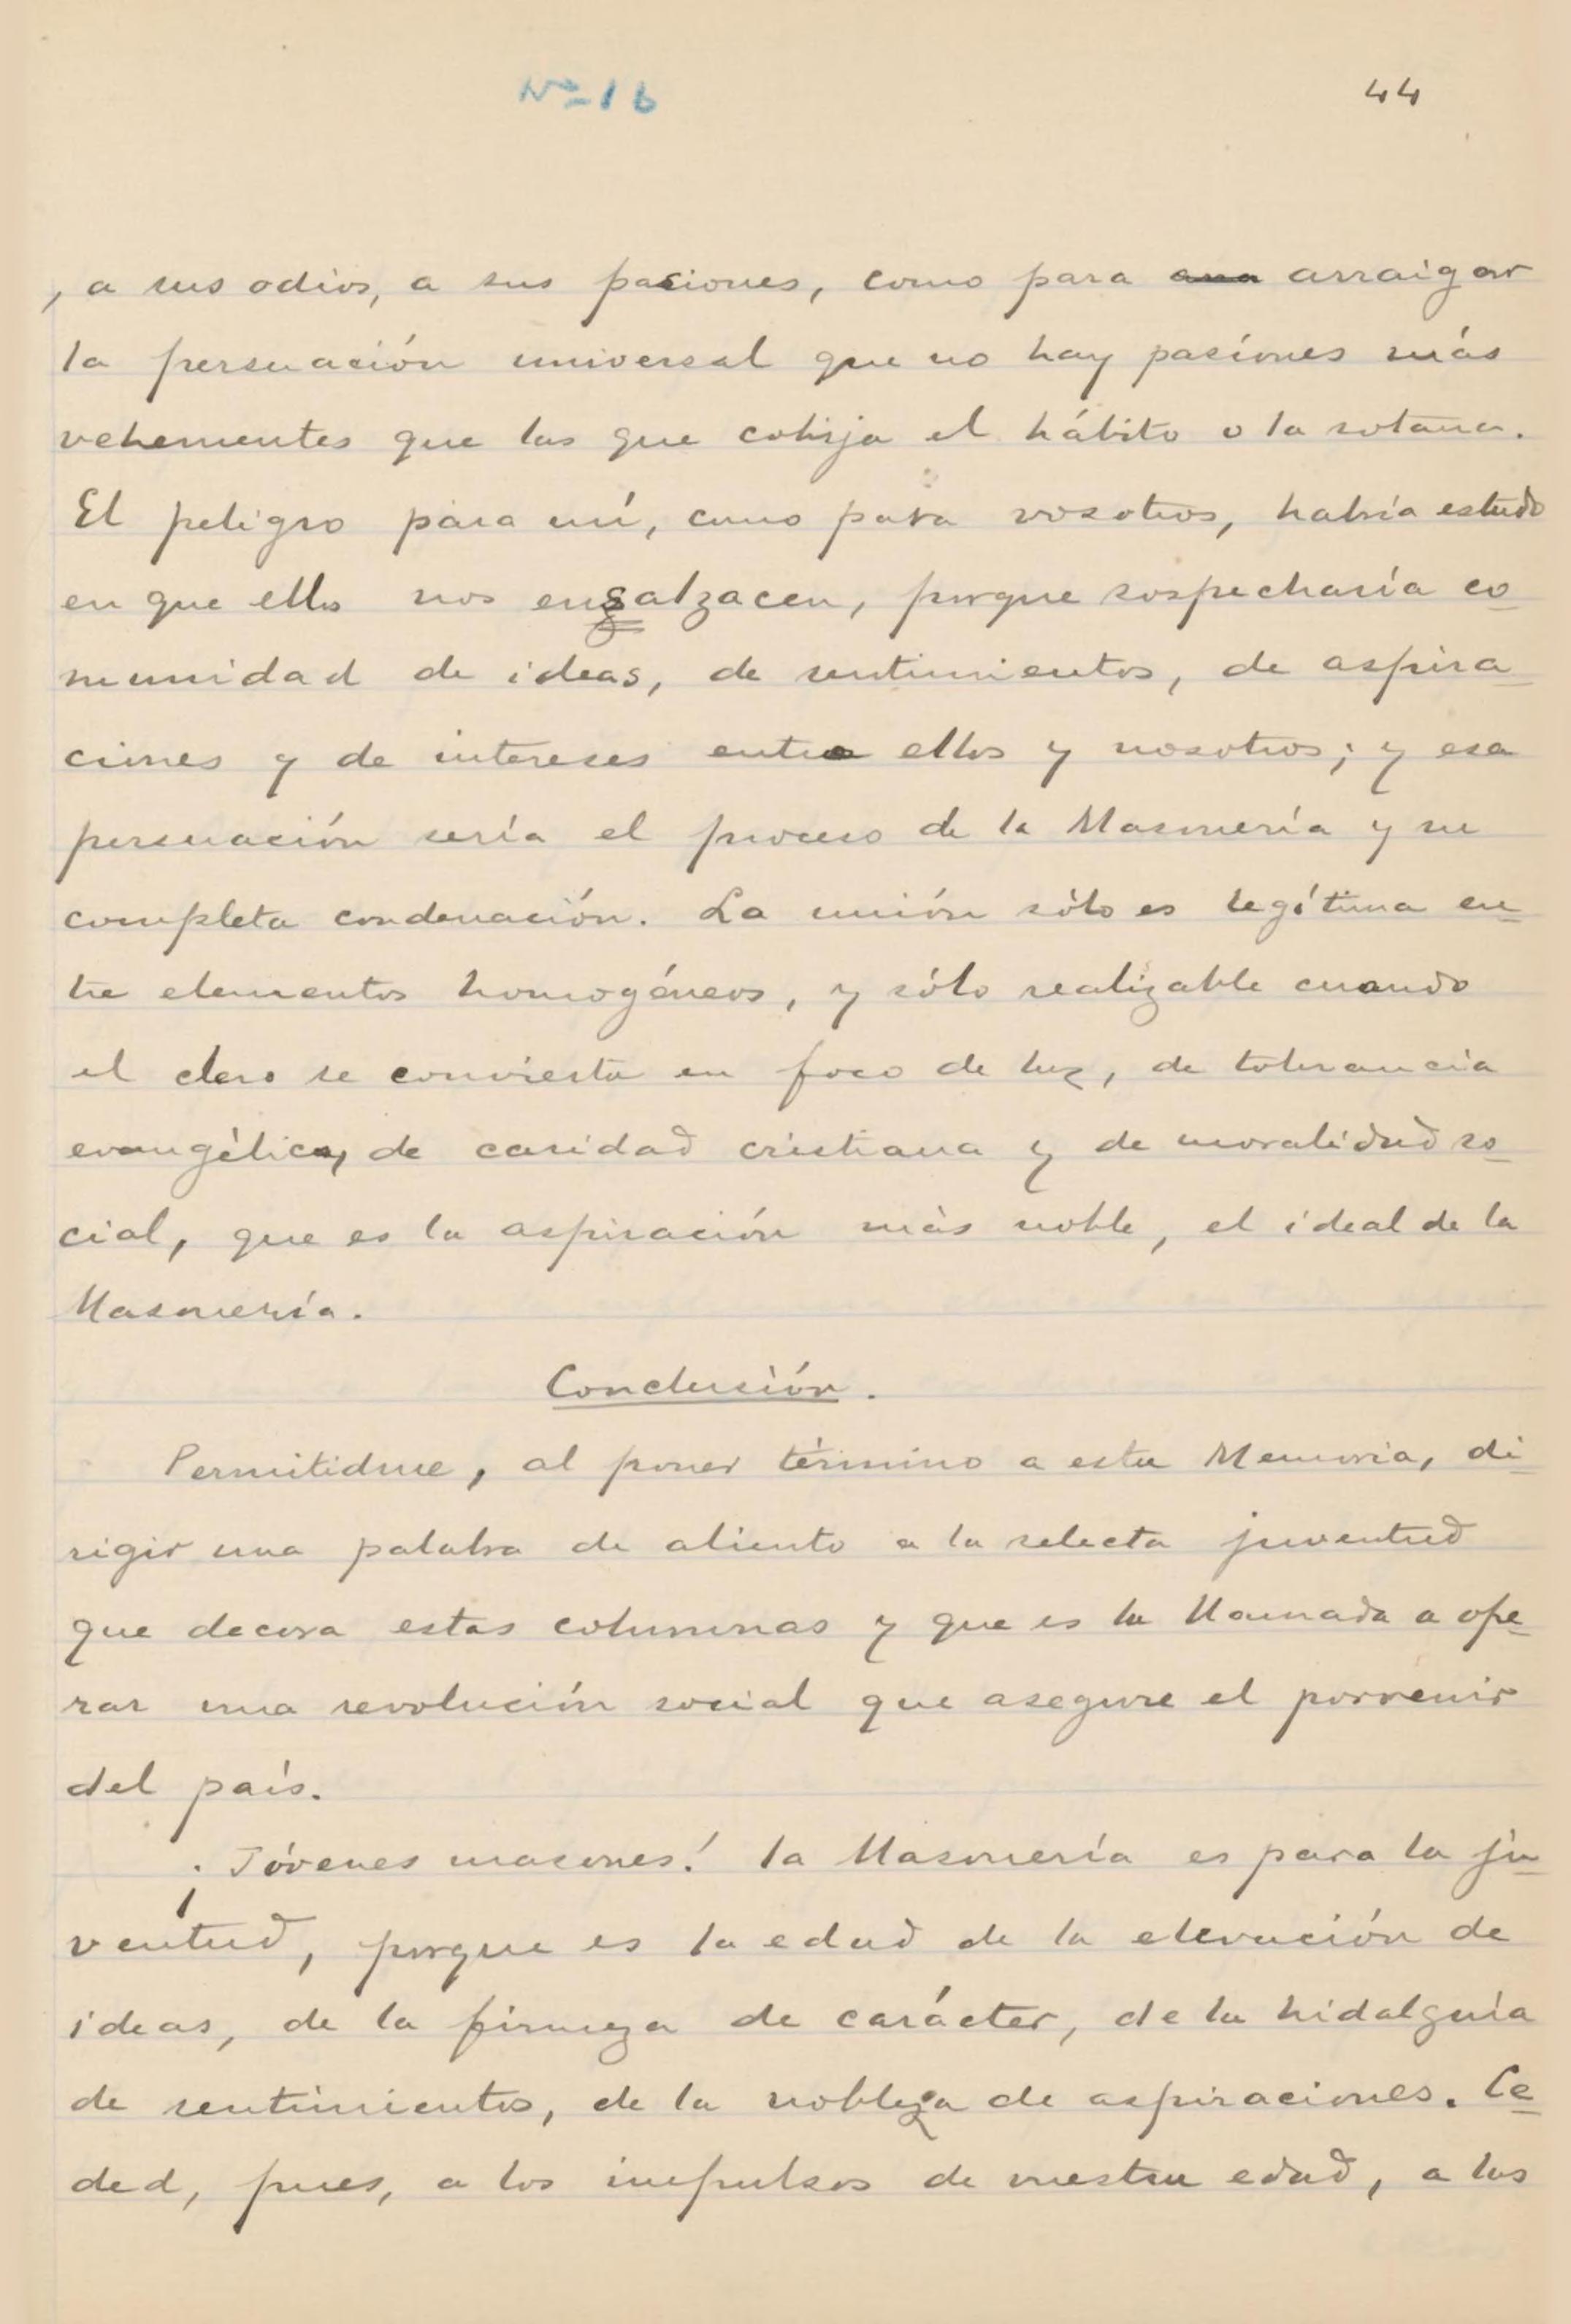 Nº 16
44
, a sus odios, a sus pasiones, como para arraigar
la persuación universal que no hay pasiones más
vehementes que las que cobija el hábito o la sotana.
El peligro para mí, como para vosotros, habría estado
en que ellos nos ensalzacen, porque sospecharía co
munidad de ideas, de sentimientos, de aspira
ciones y de intereses entre ellos y nosotros; y esa
persuación sería el proceso de la Masonería y su
completa condenación. La unión sólo es legítima en
tre elementos homogéneos, y sólo realizable cuando
el clero se convierta en foco de luz, de tolerancia
evangélica, de caridad cristiana y de moralidad so
cial, que es la aspiración más noble, el ideal de la
Masonería.
Conclusión.
Permitidme, al poner término a esta Memoria, di
rigir una palabra de aliento a la selecta juventud
que decora estas columnas y que es la llamada a ope
rar una revolución social que asegure el porvenir
del país.
¡Jóvenes masones! la Masonería es para la ju
ventud, porque es la edad de la elevación de
ideas, de la firmeza de carácter, de la hidalguía
de sentimientos, de la nobleza de aspiraciones. Ce
ded, pues, a los impulsos de vuestra edad, a los